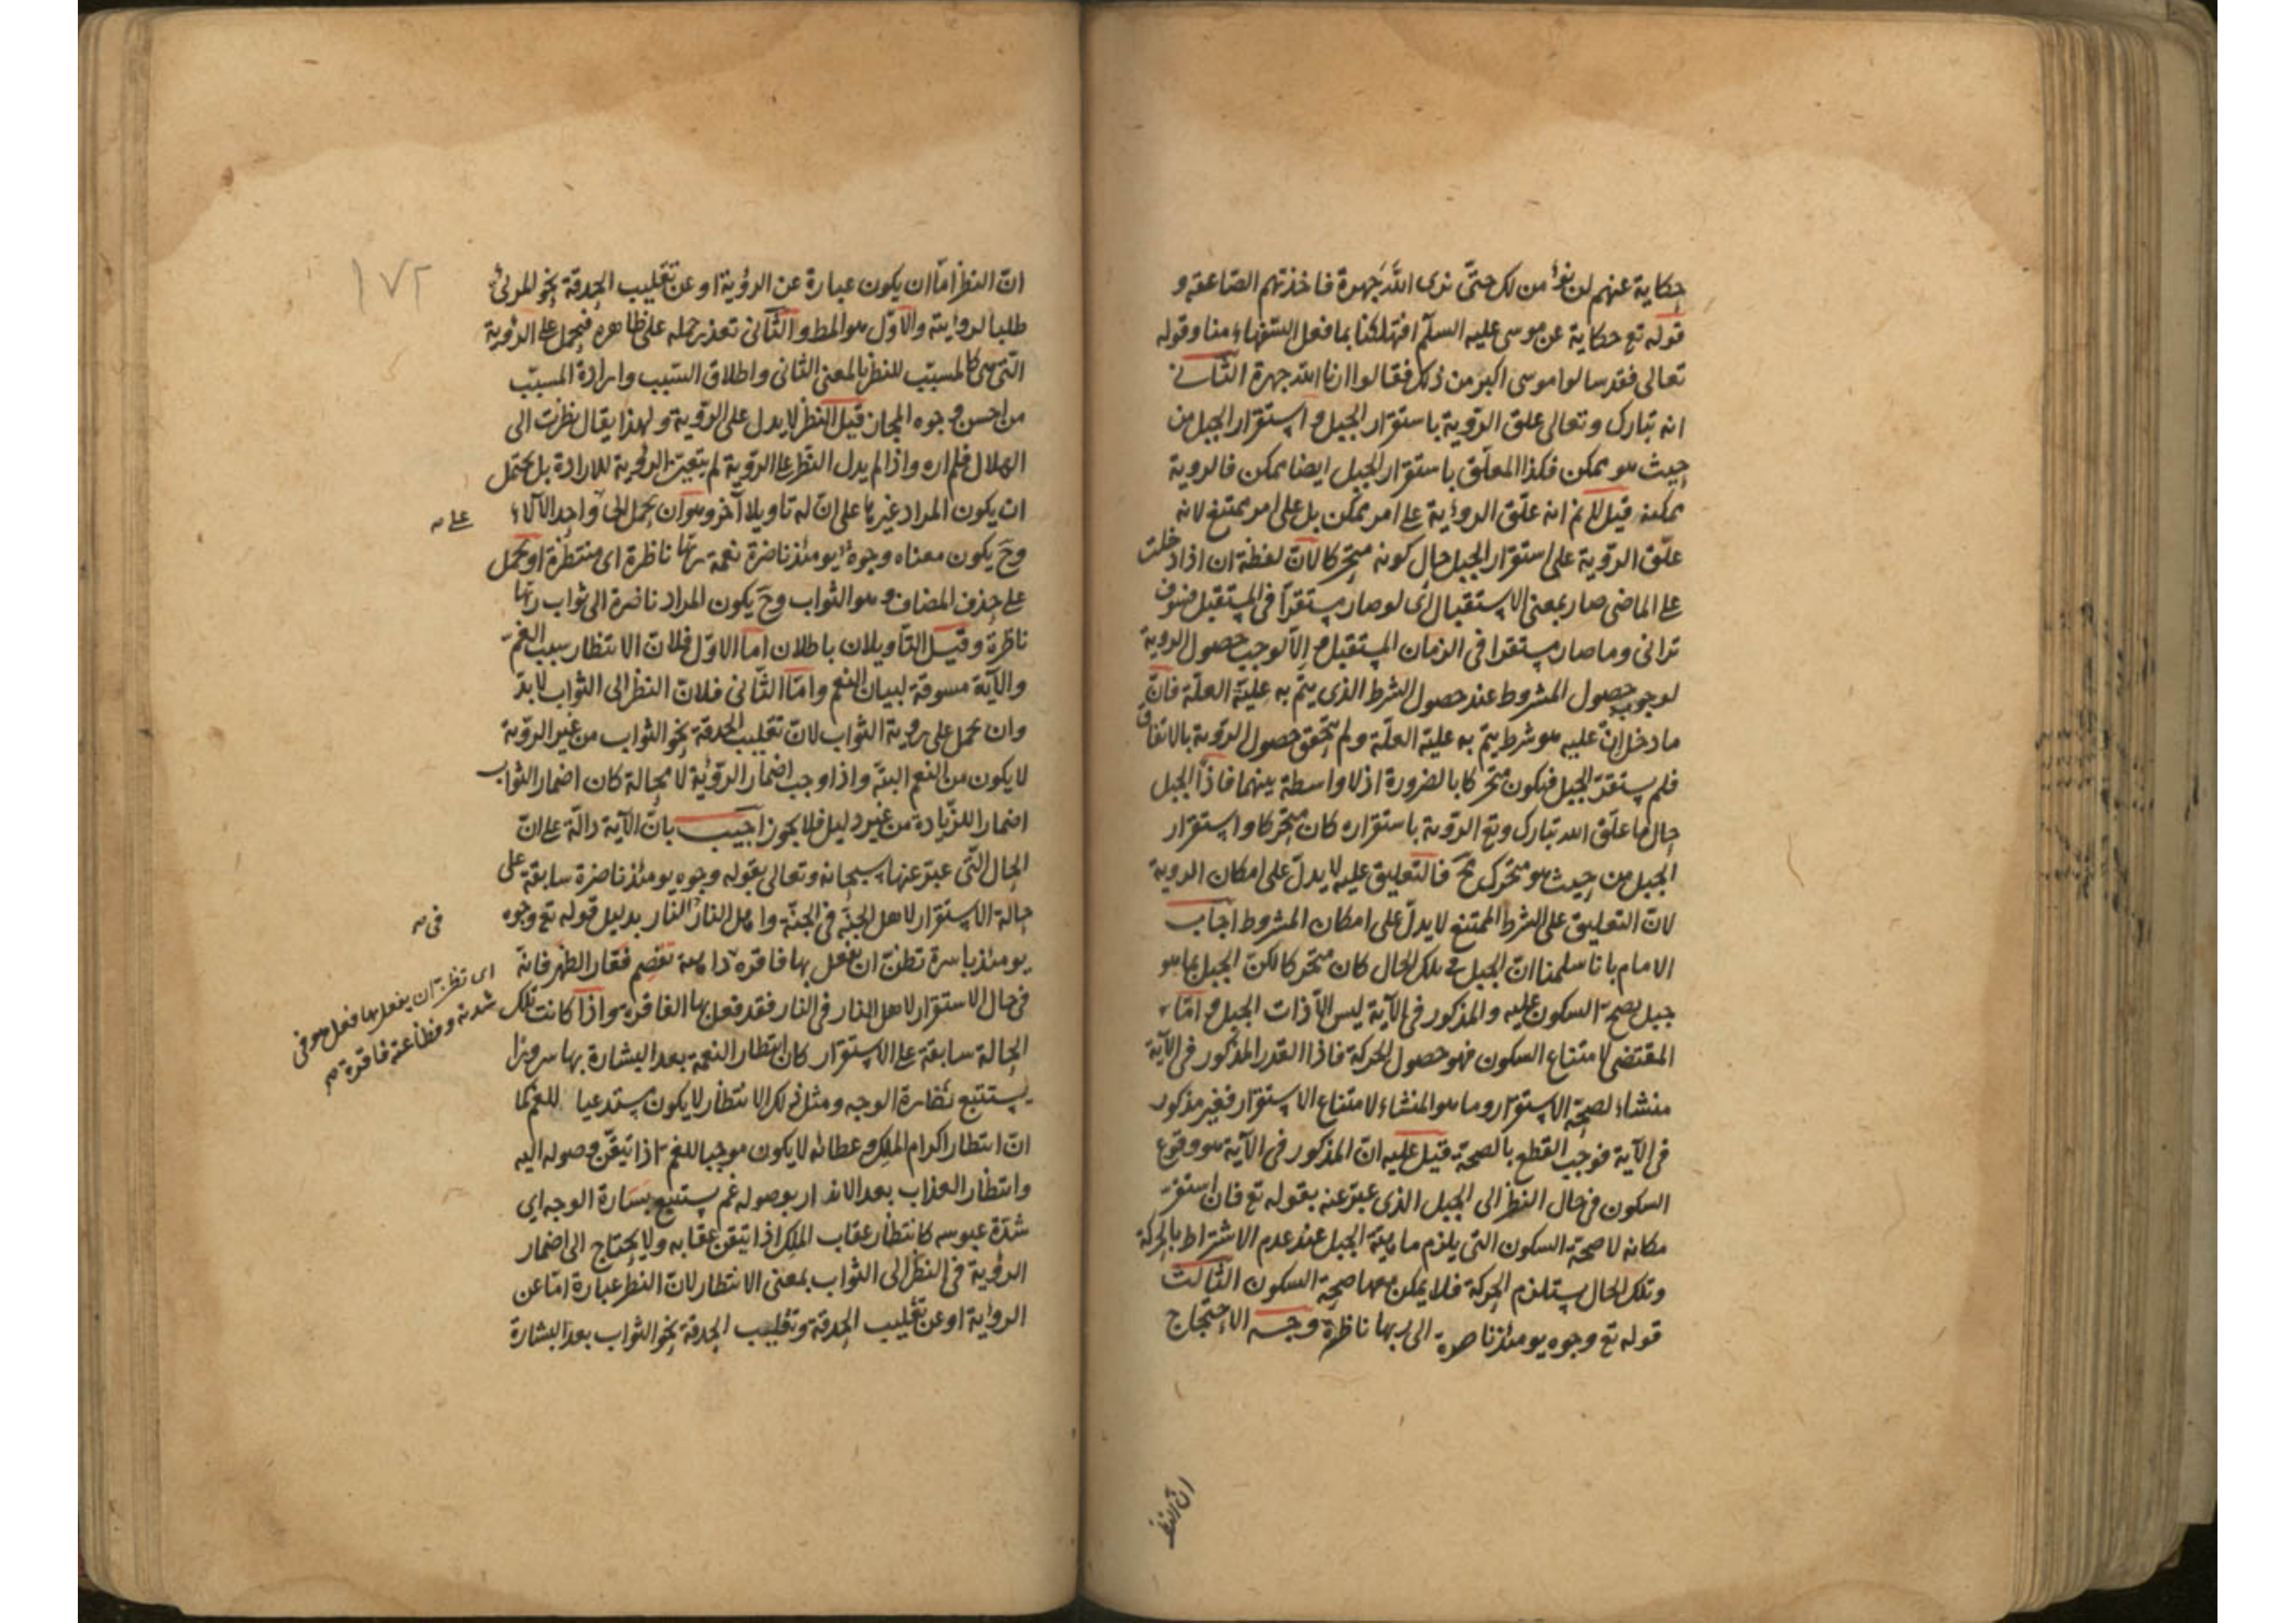 حكاية عنهم لن نؤمن لك حتى نرى الله جهرة فاخذتهم الصاعقة و
قوله تع حكاية عن موسى عليه السلم افتهلكنا بما فعل السفهاء منا وقوله
تعالى فقد سالوا موسى اكبر من ذلك فقالوا ارنا الله جهرة الثاني
انه تبارك وتعالى علق الروية باستقرار الجبل و استقرار الجبل من
حيث هو ممكن فكذا المعلق باستقرار الجبل ايضا ممكن فالروية
ممكنة قيل لا نم انه علق الروئية على امر ممكن بل على امر ممتنع لانه
علق الروية على استقرار الجبل حال كونه متحركا لان لفظة ان اذا دخلت
على الماضى صار بمعنى الاستقبال اى لو صار مستقرا فى المستقبل فسوف
ترانى وما صار مستقرا فى الزمان المستقبل و الا لوجب حصول الروية
لوجوب حصول المشروط عند حصول الشرط الذى يتم به علية العلة فان
ما دخل ان عليه هو شرط يتم به علية العلة ولم يتحقق حصول الروية بالاتفاق
فلم يستقر الجبل فيكون متحركا بالضرورة اذ لا واسطة بينهما فاذا الجبل
حال ما علق الله تبارك وتع الروية باستقراره كان متحركا واستقرار
الجبل من حيث هو متحرك مح فالتعليق عليه لا يدل على امكان الروية
لان التعليق على الشرط الممتنع لا يدل على امكان المشروط اجاب
الامام بانا سلمنا ان الجبل فى تلك الحال كان متحركا لكن الجبل بما هو
جبل يصح السكون عليه والمذكور فى الآية ليس الا ذات الجبل و اما
المقتضى لامتناع السكون فهو حصول الحركة فاذا القدر المذكور فى الآية
منشاء لصحة الاستقرار وما هو المنشاء لامتناع الاستقرار فغير مذكور
فى الآية فوجب القطع بالصحة قيل عليه ان المذكور فى الآية هو وقوع
السكون فى حال النظر الى الجبل الذى عبر عنه بقوله تع فان استقر
مكانه لا صحة السكون التى يلزم ماهية الجبل عند عدم الاشتراط بالحركة
وتلك الحال يستلزم الحركة فلا يمكن معها صحة السكون الثالث
قوله تع وجوه يومئذ ناضرة الى ربها ناظرة وجه الاحتجاج
ان النظر
١٧٢
ان النظر اما ان يكون عبارة عن الروؤية او عن تقليب الحدقة نحو المرئى
طلبا لروايته والاول هو المط والثانى تعذر حمله على ظاهره فيحمل على الروية
التى هى كالمسبب للنظر بالمعنى الثانى واطلاق السبب وارادة المسبب
من احسن وجوه المجاز قيل النظر لا يدل على الروية ولهذا يقال نظرت الى
الهلال فلم اره واذا لم يدل النظر على الروية لم يتعين الروية للارادة بل يحتمل
ان يكون المراد غيرها على ان له تاويلا آخر وهو ان يحمل الى واحد الآلاء
على
وح يكون معناه وجوه يومئذ ناضرة نعمة ربها ناظرة اى منتظرة او يحمل
على حذف المضاف وهو الثواب وح يكون المراد ناضرة الى ثواب ربها
ناظرة وقيل التاويلان باطلان اما الاول فلان الانتظار سبب الغم
والآية مسوقة لبيان النعم واما الثانى فلان النظر الى الثواب لا بد
وان يحمل على روية الثواب لان تقليب الحدقة نحو الثواب من غير الروية
لا يكون من النعم البتة واذا وجب اضمار الروئية لا محالة كان اضمار الثواب
اضمارا للزيادة من غير دليل فلا يجوز اجيب بان الآية دالة على ان
الحال التى عبر عنها سبحانه وتعالى بقوله وجوه يومئذ ناضرة سابقة على
حالة الاستقرار لاهل الجنة فى الجنة واهل النار النار بدليل قوله تع وجوه
فى
يومئذ باسرة تظن ان يفعل بها فاقرة داهية تقصم فقار الظهر فانه
اى تظن ان يفعل بها فعل هو فى
شدته وفظاعته فاقرة
فى حال الاستقرار لاهل النار فى النار فقد فعل بها الفاقرة واذا كانت تلك
الحالة سابقة على الاستقرار كان انتظار النعمة بعد البشارة بها سرورا
يستتبع نظارة الوجه ومثل ذلك الانتظار لا يكون مستدعيا للغم كما
ان انتظار اكرام الملك و عطائه لا يكون موجبا للغم اذا تيقن وصوله اليه
وانتظار العذاب بعد الانذار بوصوله غم يستتبع بسارة الوجه اى
شدة عبوسه كانتظار عقاب الملك اذا تيقن عقابه ولا يحتاج الى اضمار
الروئية فى النظر الى الثواب بمعنى الانتظار لان النظر عبارة اما عن
الرواية او عن تقليب الحدقة وتقليب الحدقة نحو الثواب بعد البشارة